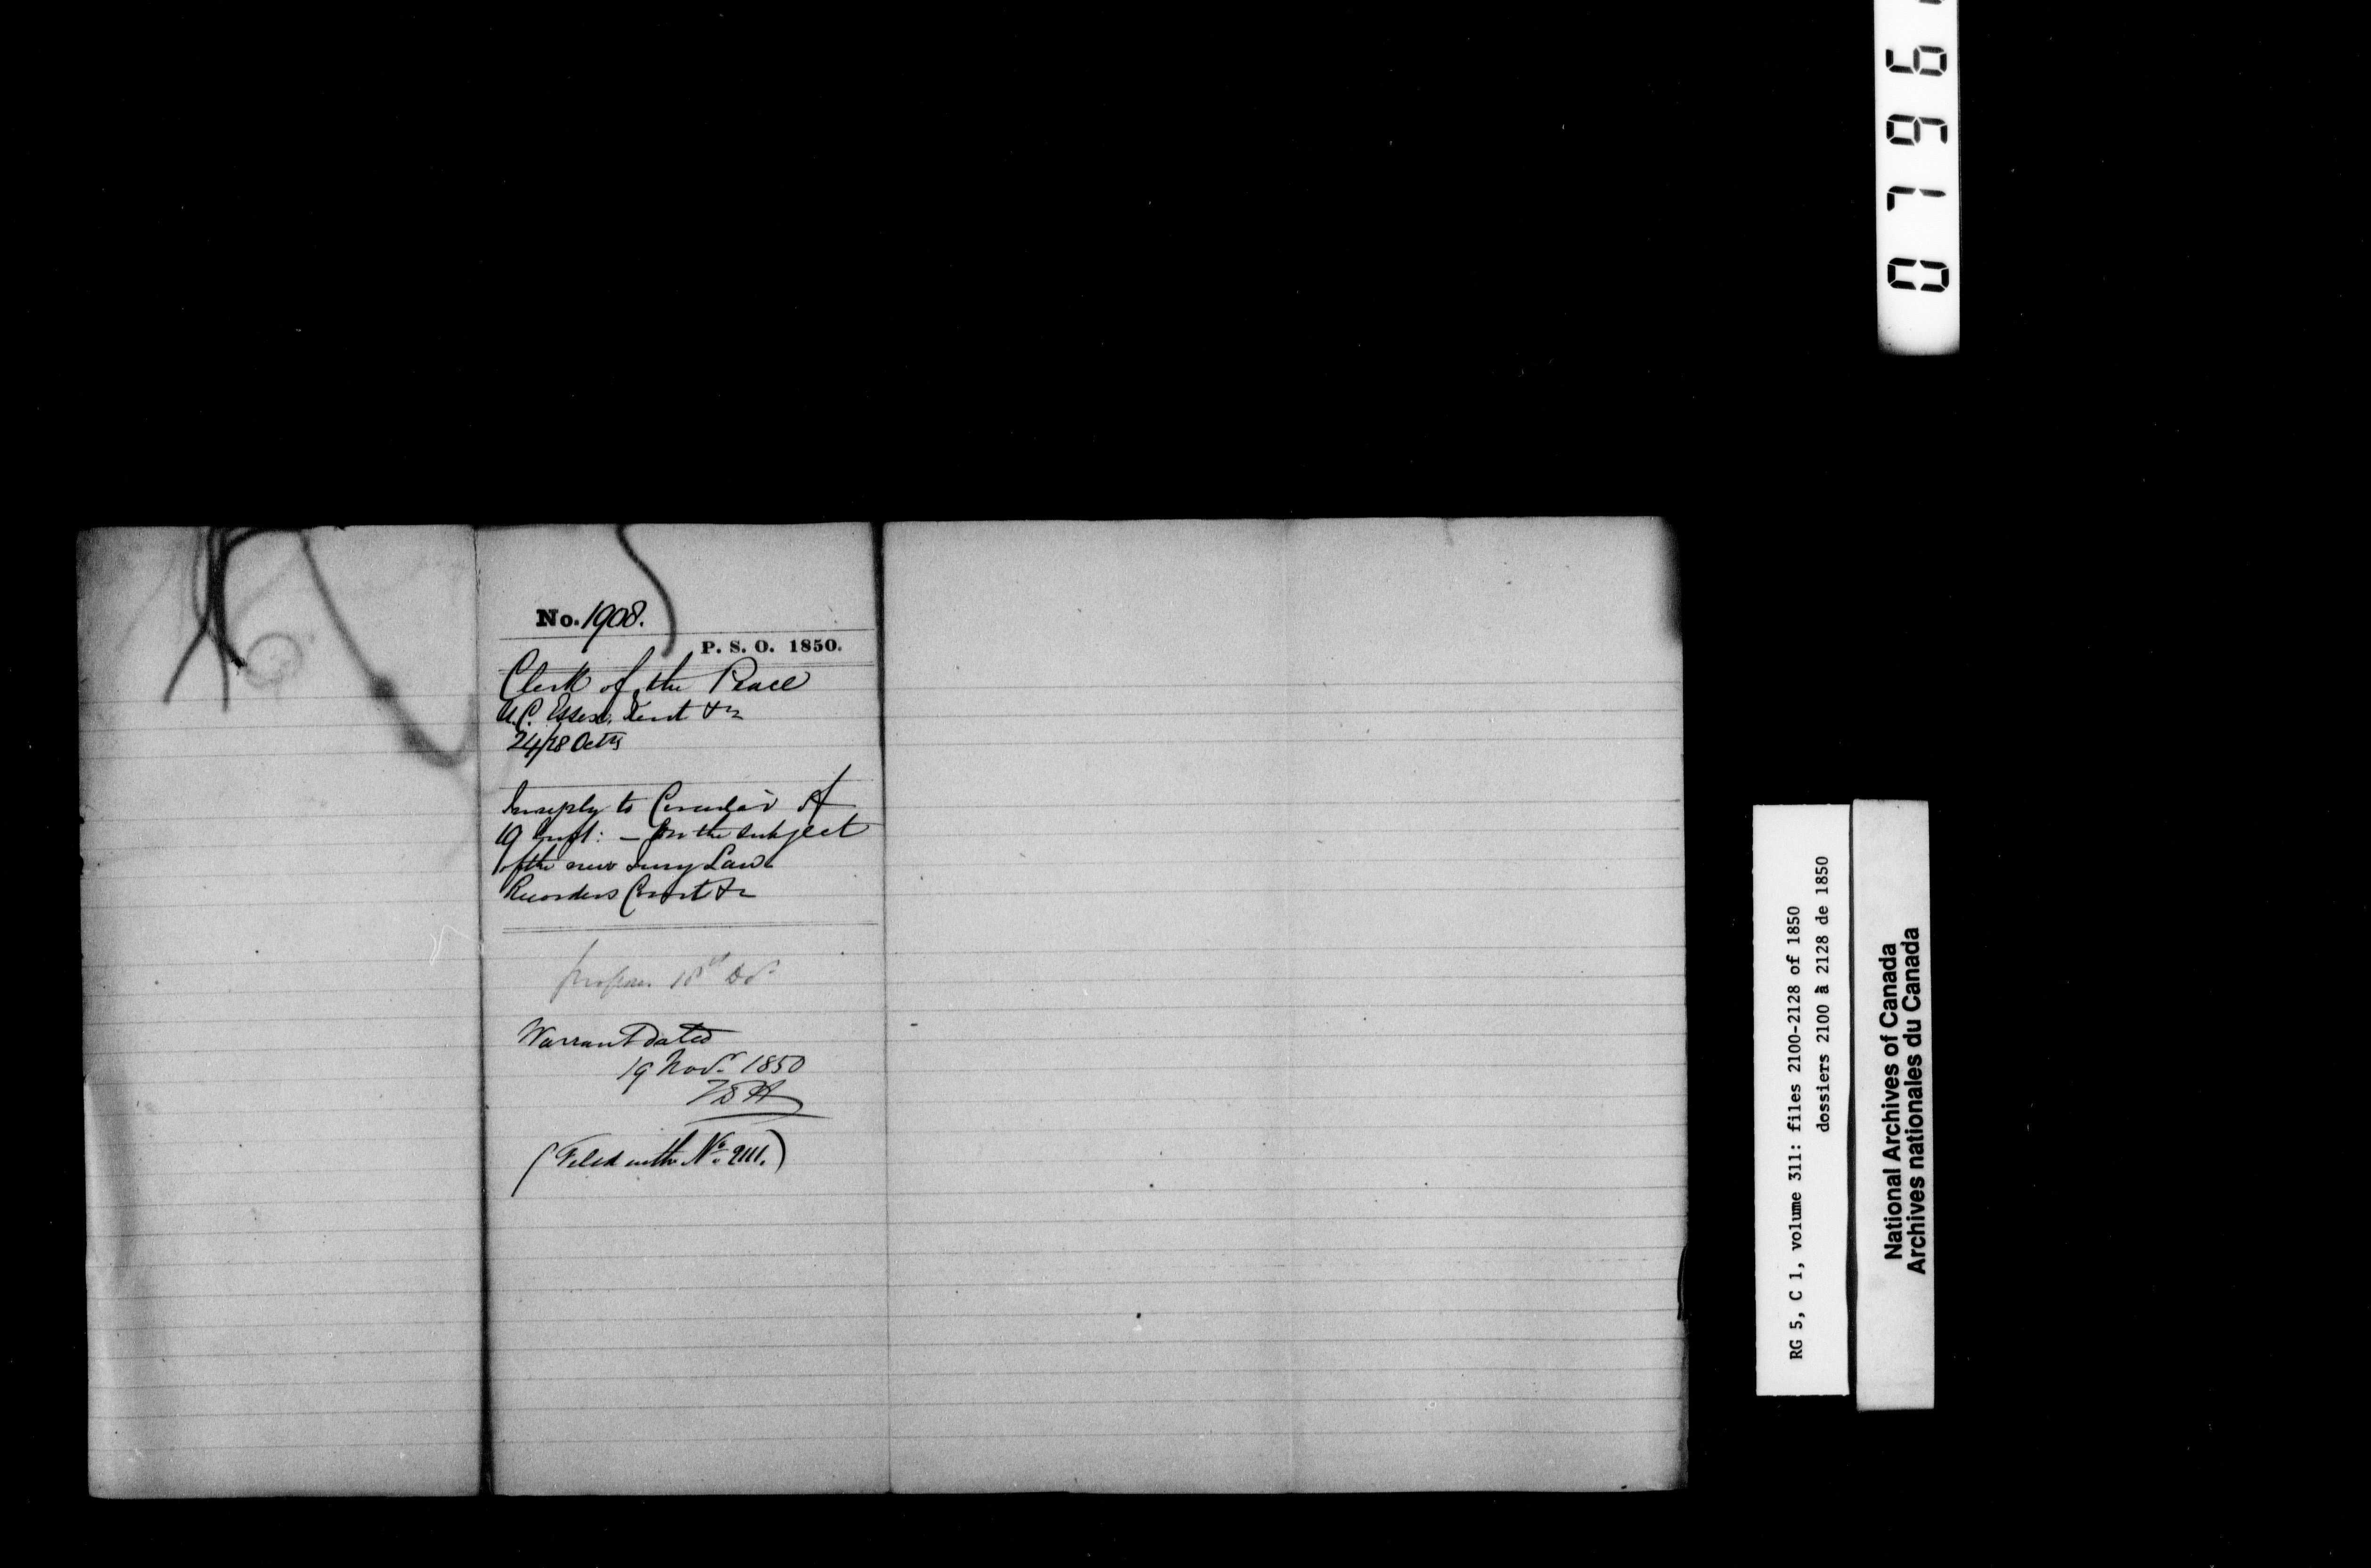 No. 1908.
P. S. O. 1850.
Clerk of the Peace
U.C. Essex, Kent &c
24/28 Octr
In reply to Circular of
19 Inst: – On the subject
of the new Jury Law
Recorders Court &c
18th
Warrant dated
19 Novr 1850
(Filed with No. 2111.)
RG 5, C 1, volume 311: files 2100-2128 of 1850
dossiers 2100 à 2128 de 1850
National Archives of Canada
Archives nationales du Canada
0796